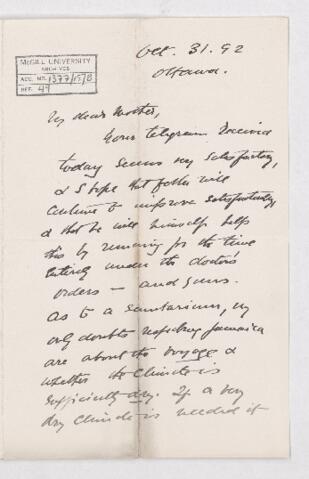 McGILL UNIVERSITY
ARCHIVES
ACC. NO. 1377/15/B
REF. 49
Oct. 31. 92
Ottawa.
My dear Mother,
Your telegram received
today seems very satisfactory,
& I hope that father will
continue to improve satisfactorily,
& that he will himself help
this by remaining for the time
entirely under the doctor's
orders — and yours.
As to a sanitarium, my
only doubts respecting Jamaica
are about the voyage &
whether the Climate is
sufficiently dry. If a very
dry Climate is needed it